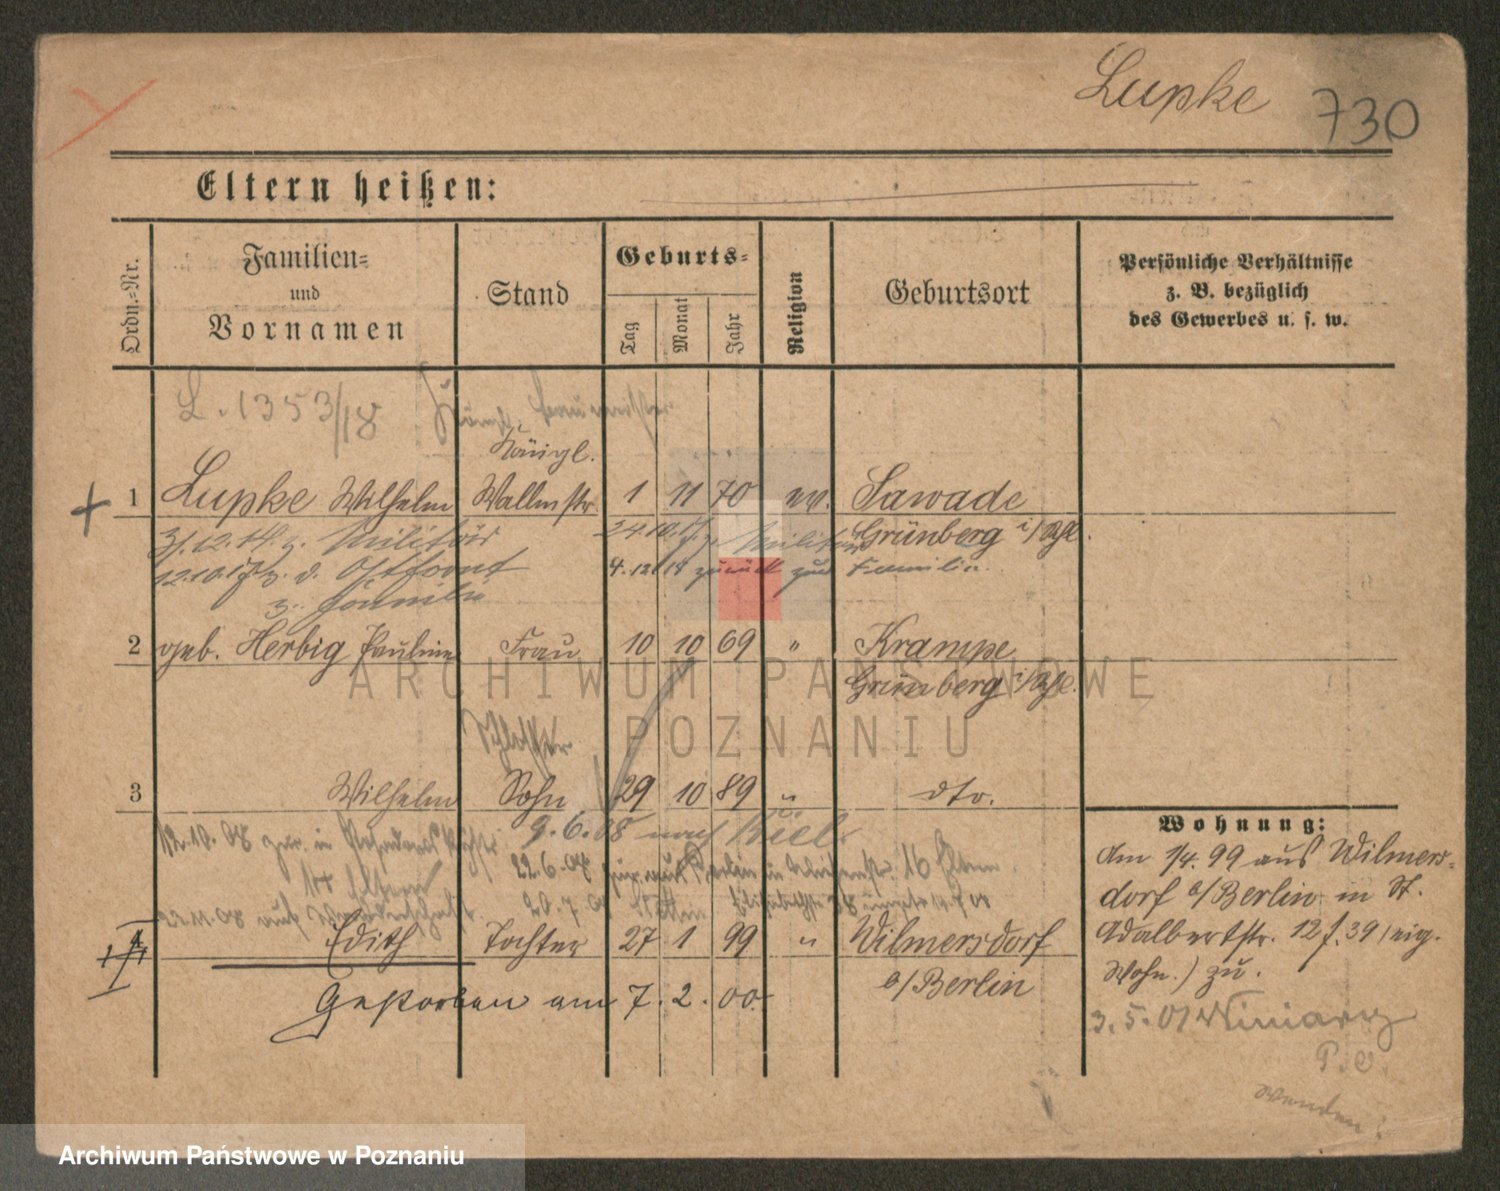 Lupke 730
Eltern heißen:
Ordn.=Nr.
Familien=
und
Vornamen
Stand
Geburts=
Tag
Monat
Jahr
Religion
Geburtsort
Persönliche Verhältnisse
z. B. bezüglich
des Gewerbes u. s. w.
L. 1353/18
Königl.
1 Lupke Wilhelm Wallmstr. 1 11 70 ev. Sawade
Grünberg i/Schl.
31.12.14 z. Militär 24.10.17 z. Militär
12.10.17 z. d. Ostfront 4.12.18 zurück zur Familie.
z. Familie
2 geb. Herbig Pauline Frau 10 10 69 " Krampe
Grünberg i/Schl.
Schlosser
3 Wilhelm Sohn 29 10 89 " dto.
9.6.08 nach Kiel
12.10.08 zur. in
22.6.07 Berlin 16
14 Eltern
22.11.08 auf 20.7.07 Stettin
4 Edith Tochter 27 1 99 " Wilmersdorf
b/Berlin
Gestorben am 7.2.00.
Wohnung:
Am 1/4.99 aus Wilmers-
dorf b/Berlin in St.
Adalbertstr. 12 f. 39 (eig.
Wohn.) zu.
3.5.01 Winiary
P. v.
Wenden!
ARCHIWUM PAŃSTWOWE
W POZNANIU
Archiwum Państwowe w Poznaniu